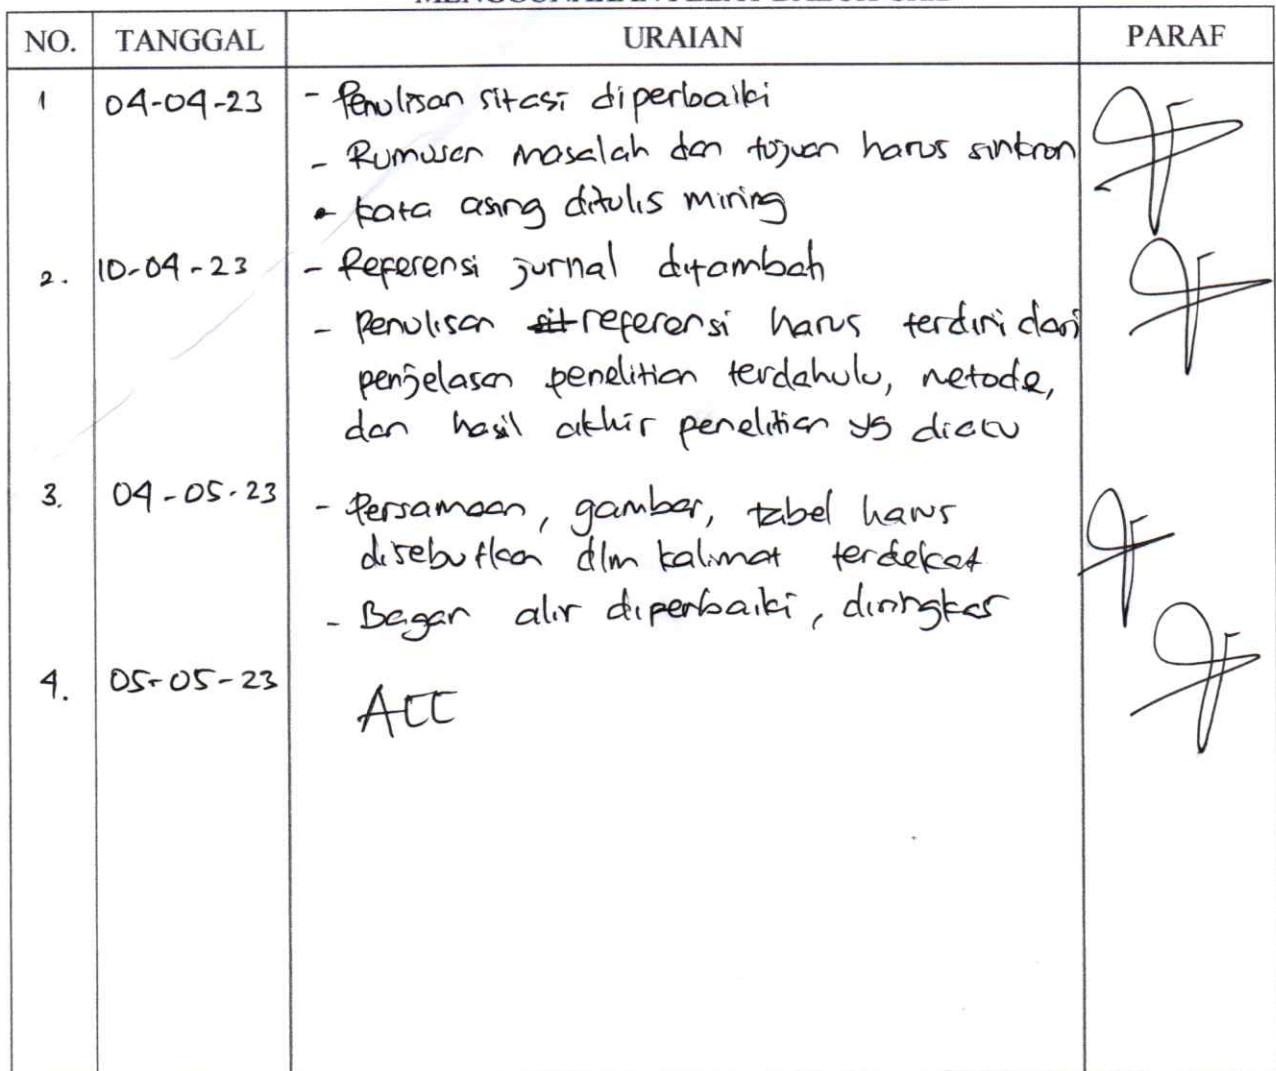 NO. TANGGAL URAIAN PARAF
1 04-04-23 - Penulisan sitasi diperbaiki
- Rumusan masalah dan tujuan harus sinkron
- kata asing ditulis miring
2. 10-04-23 - Referensi jurnal ditambah
- Penulisan sit referensi harus terdiri dari
penjelasan penelitian terdahulu, metode,
dan hasil akhir penelitian yg diacu
3. 04-05-23 - Persamaan, gambar, tabel harus
disebutkan dlm kalimat terdekat
- Bagan alir diperbaiki, diringkas
4. 05-05-23 ACC